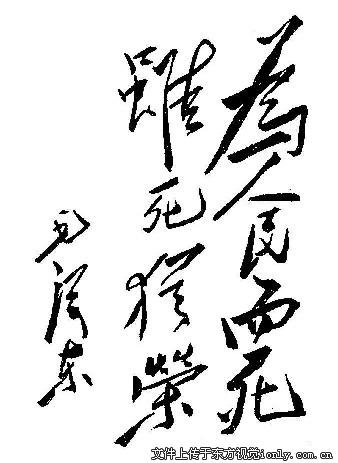 為人民而死
雖死猶榮
毛澤东
文件上传于东方视觉ionly.com.cn